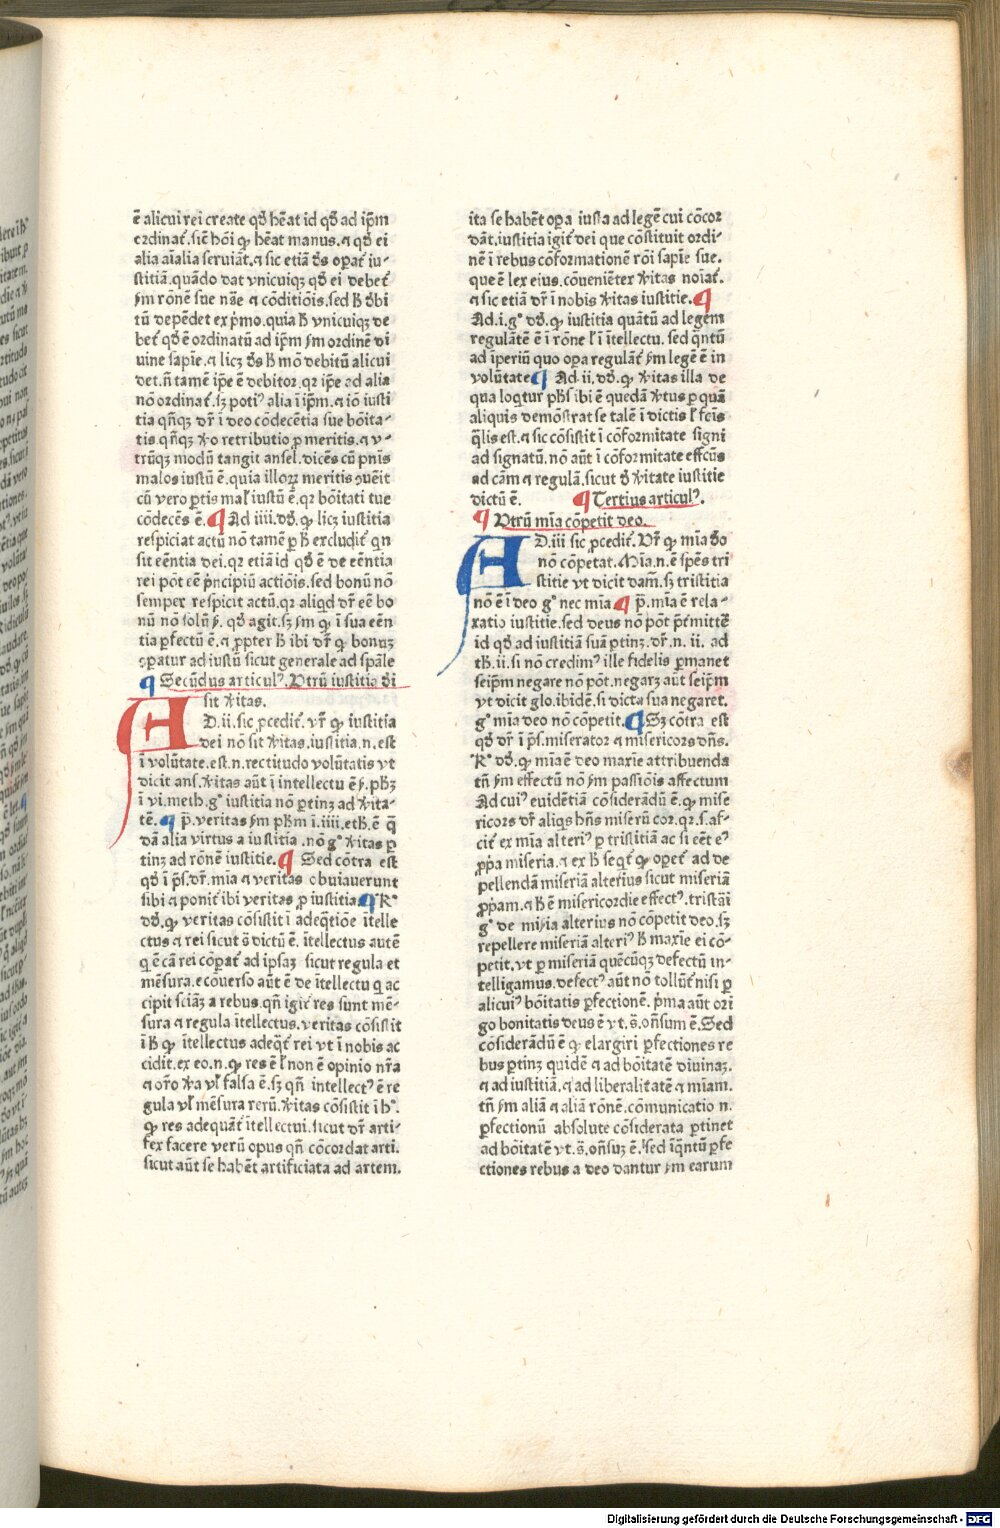 ē alicui rei create qđ hēat id qđ ad ip̄m
ordinat᷑. sic̄ hōi ꝙ hēat manus. ⁊ qđ ei
alia aīalia seruiāt. ⁊ sic etiā đs operat᷑ iu-
stitiā. quādo dat vnicuiqꝫ qđ ei debet᷑
ẜm rōnē sue nāe ⁊ cōditiōis. sed ħ đbi
tū depēdet ex p̄mo. quia ħ vnicuiqꝫ de
bet᷑ qđ ē ordinatū ad ip̄m ẜm ordinē di
uine sapīe. ⁊ licꝫ đs ħ mō debitū alicui
det. ñ tamē ip̄e ē debitor. qꝛ ip̄e ad alia
nō ordinat᷑. sꝫ poti⁹ alia ī ip̄m. ⁊ iō iusti
tia qn̄qꝫ dr̄ ī deo cōdecētia sue bōita-
tis. qn̄qꝫ ꝟo retributio ꝑ meritis. ⁊ v-
trūqꝫ modū tangit ansel. dicēs cū pnis
malos iustū ē. quia illoꝝ meritis ꝯuēit
cū vero ꝑtis mal᷑ iustū ē. qꝛ bōitati tue
cōdecēs ē. ¶ Ad iiii. đđ. ꝙ licꝫ iustitia
respiciat actū nō tamē ꝑ ħ excludit᷑ qn
sit eēntia dei. qꝛ etiā id qđ ē de eēntia
rei pōt eē p̄ncipiū actiōis. sed bonū nō
semper respicit actū. qꝛ aliqd dr̄ eē bo
nū nō solū ẜ. qđ agit. sꝫ ẜm ꝙ ī sua eēn
tia ꝑfectū ē. ⁊ ꝓpter ħ ibi dr̄ ꝙ bonuꝫ
cꝑatur ad iustū sicut generale ad sp̄ale
¶ Secūdus articul⁹. Vtrū iustitia di
sit ꝟitas.
AD. ii. sic ꝓcedit᷑. vr̄ ꝙ iustitia
dei nō sit ꝟitas. iustitia. n. est
ī volūtate. est. n. rectitudo volūtatis vt
dicit ans. ꝟitas aūt ī intellectu ē ẜ. phꝫ
ī vi. meth. g° iustitia nō ꝑtinꝫ ad ꝟita-
tē. ¶ p̄. veritas ẜm phm ī. iiii. eth. ē q̄
dā alia virtus a iustitia. nō g° ꝟitas ꝑ
tinꝫ ad rōnē iustitie. ¶ Sed cōtra est
qđ ī p̄s. dr̄. mīa ⁊ veritas obuiauerunt
sibi ⁊ ponit᷑ ibi veritas ꝓ iustitia ¶ R°
đđ. ꝙ veritas cōsistit ī adeq̄tiōe ītelle
ctus ⁊ rei sicut s̄ dictū ē. ītellectus autē
q ē cā rei cōꝑat᷑ ad ipsaꝫ sicut regula et
mēsura. ecouerso aūt ē de ītellectu q ac
cipit sciāꝫ a rebus. qn̄ igit᷑ res sunt mē-
sura ⁊ regula ītellectus. veritas cōsistit
ī ħ ꝙ ītellectus adeqt᷑ rei vt ī nobis ac
cidit. ex eo. n. ꝙ res ē l᷑ non ē opinio nr̄a
⁊ or̄o ꝟa vl᷑ falsa ē. sꝫ qn̄ intellect⁹ ē re
gula vl᷑ mēsura rerū. ꝟitas cōsistit ī h°.
ꝙ res adequāt᷑ ītellectui. sicut dr̄ arti-
fex facere verū opus qn̄ cōcordat arti.
sicut aūt se habēt artificiata ad artem.
ita se habēt oꝑa iusta ad legē cui cōcor
dāt. iustitia igit᷑ dei que cōstituit ordi-
nē ī rebus cōformationē rōi sapīe sue.
que ē lex eius. cōueniēter ꝟitas noīat᷑.
⁊ sic etiā dr̄ ī nobis ꝟitas iustitie. ¶
Ad. i. g° đđ. ꝙ iustitia quātū ad legem
regulātē ē ī rōne l᷑ ī ītellectu. sed q̄ntū
ad īperiū quo oꝑa regulāt᷑ ẜm legē ē in
volūtate ¶ Ad. ii. đđ. ꝙ ꝟitas illa de
qua loqtur phs ibi ē quedā ꝟtus ꝑ quā
aliquis demōstrat se talē ī dictis l᷑ fc̄is
q̄lis est. ⁊ sic cōsistit ī cōformitate signi
ad signatū. nō aūt ī cōformitate effcūs
ad cām ⁊ regulā. sicut đ ꝟitate iustitie
dictū ē. ¶ Tertius articul⁹.
¶ Vtrū mīa cōpetit deo.
AD. iii sic ꝓcedit᷑. Vr̄ ꝙ mīa đo
nō cōpetat. Mīa. n. ē spēs tri
stitie vt dicit dam̄. sꝫ tristitia
nō ē ī deo g° nec mīa ¶ p̄. mīa ē rela-
xatio iustitie. sed deus nō pōt p̄tmittē
id qđ ad iustitiā suā ꝑtinꝫ. dr̄. n. ii. ad
tħ. ii. si nō credim⁹ ille fidelis ꝑmanet
seip̄m negare nō pōt. negarꝫ aūt seip̄m
vt dicit glo. ibidē. si dicta sua negaret.
g° mīa deo nō cōpetit. ¶ Sꝫ cōtra est
qđ dr̄ ī p̄s. miserator ⁊ misericors dn̄s.
R° đđ. ꝙ mīa ē deo maxīe attribuenda
tn̄ ẜm effectū nō ẜm passiōis affectum
Ad cui⁹ euidētiā cōsiderādū ē. ꝙ mise
ricors dr̄ aliqs hn̄s miserū cor. qꝛ. s. af-
cit᷑ ex mīa alteri⁹ ꝑ tristitiā ac si eēt e⁹
ꝓp̄a miseria. ⁊ ex ħ seqt᷑ ꝙ oꝑet᷑ ad de
pellendā miseriā alterius sicut miseriā
ꝓp̄am. ⁊ ħ ē misericordie effect⁹. tristāi
g° de miẜia alterius nō cōpetit deo. sꝫ
repellere miseriā alteri⁹ ħ maxīe ei cō-
petit. vt ꝑ miseriā quēcūqꝫ defectū in-
telligamus. defect⁹ aūt nō tollūt᷑ nisi ꝑ
alicui⁹ bōitatis ꝑfectionē. p̄ma aūt ori
go bonitatis deus ē vt. s̄. on̄sum ē. Sed
cōsiderādū ē ꝙ elargiri ꝑfectiones re
bus ꝑtinꝫ quidē ⁊ ad bōitatē diuinaꝫ.
⁊ ad iustitiā. ⁊ ad liberalitatē ⁊ mīam.
tn̄ ẜm aliā ⁊ aliā rōnē. cōmunicatio n.
ꝑfectionū absolute cōsiderata ꝑtinet
ad bōitatē vt. s̄. on̄suꝫ ē. sed īq̄ntū ꝑfe
ctiones rebus a deo dantur ẜm earum
Digitalisierung gefördert durch die Deutsche Forschungsgemeinschaft - DFG